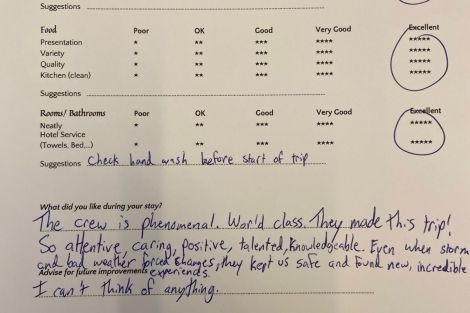 Suggestions
Food Poor OK Good Very Good Excellent
Presentation * ** *** **** *****
Variety * ** *** **** *****
Quality * ** *** **** *****
Kitchen (clean) * ** *** **** *****
Suggestions
Rooms/ Bathrooms Poor OK Good Very Good Excellent
Neatly * ** *** **** *****
Hotel Service
(Towels, Bed,...) * ** *** **** *****
Suggestions Check hand wash before start of trip
What did you like during your stay?
The crew is phenomenal. World class. They made this trip!
So attentive, caring, positive, talented, knowledgeable. Even when storm
and bad weather forced changes, they kept us safe and found new, incredible
Advise for future improvements experiences.
I can't think of anything.